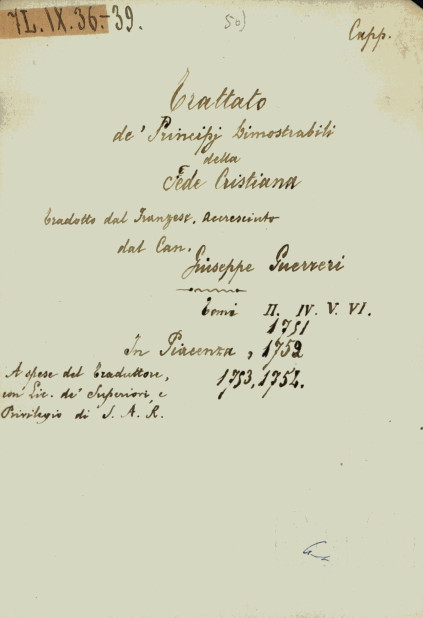 7L.IX.36.-39.
50)
Capp.
Trattato
de' Principj Dimostrabili
della
Fede Cristiana
Tradotto dal Franzese, Accresciuto
dal Can.
Giuseppe Guerreri
Tomi II. IV. V. VI.
1751
In Piacenza, 1752
A spese del Traduttore, 1753, 1754.
con Lic. de' Superiori, e
Privilegio di S. A. R.